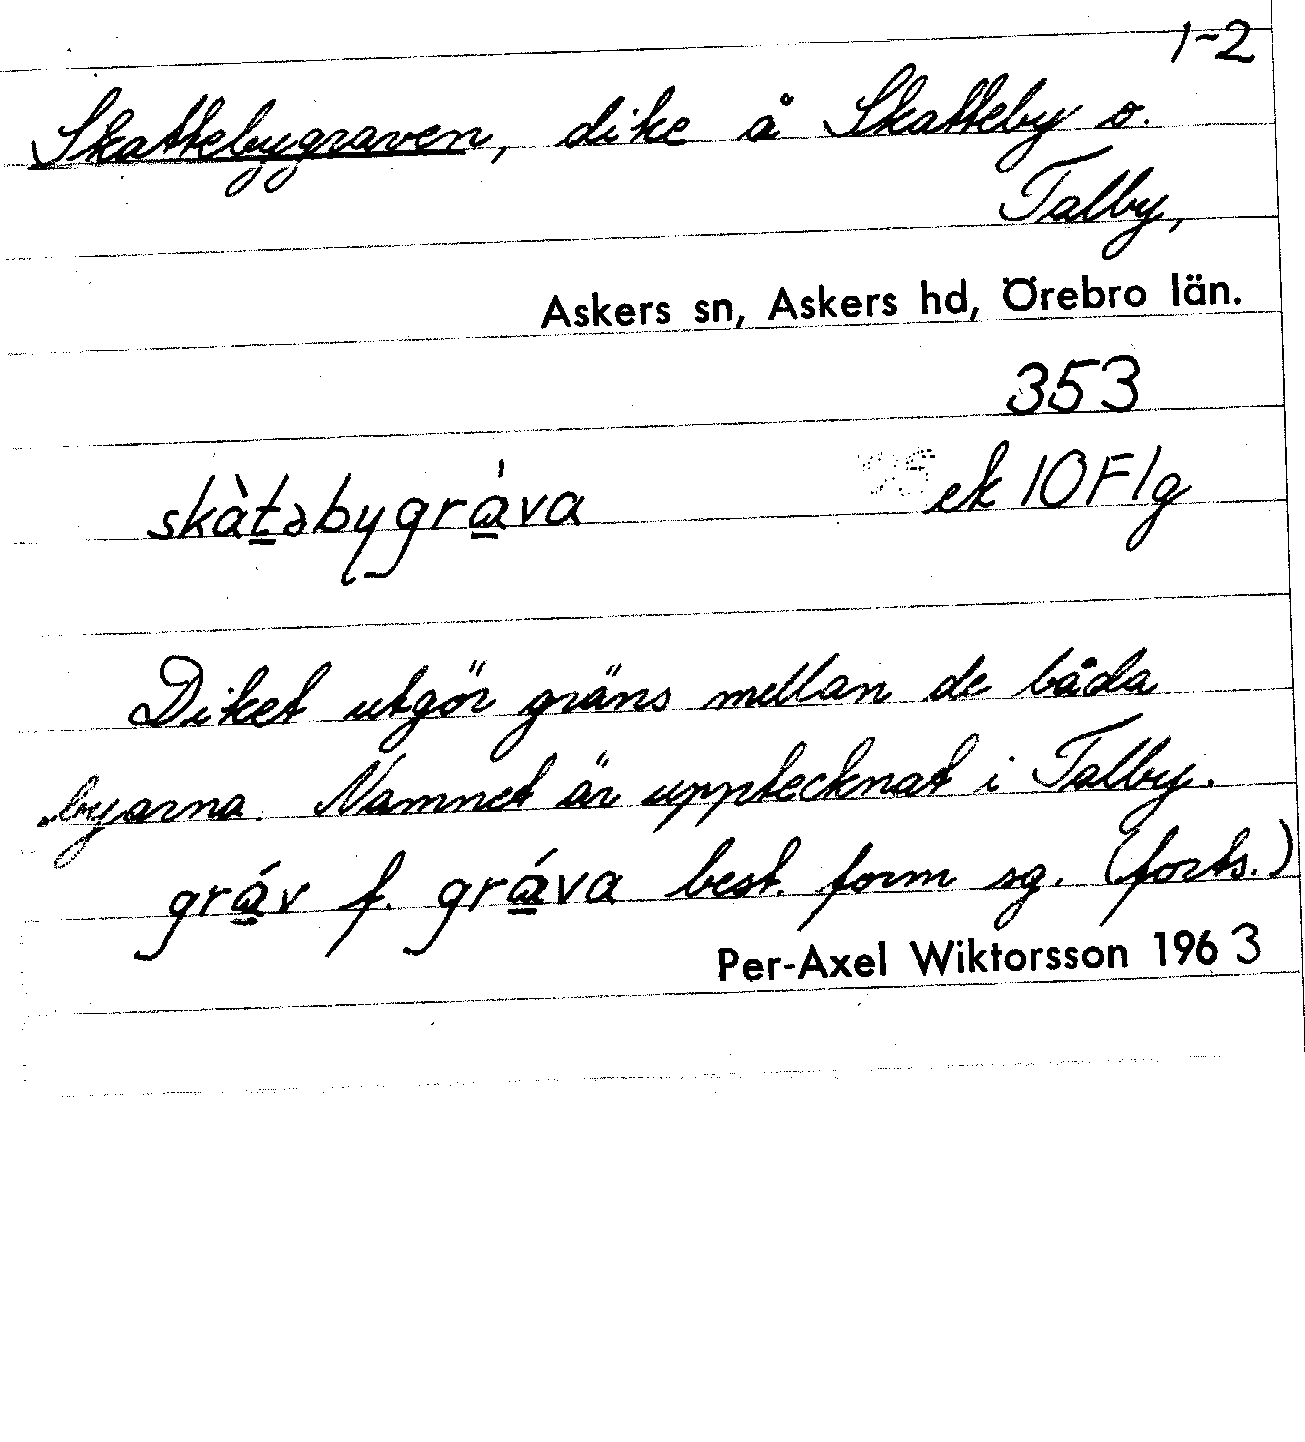 1-2
Skattebygraven, dike å Skatteby o.
Talby,
Askers sn, Askers hd, Örebro län.
353
skàt̲əbygrá̲va ek 10F1g
Diket utgör gräns mellan de båda
byarna. Namnet är upptecknat i Talby.
grá̲v f. grá̲va best. form sg. (forts.)
Per-Axel Wiktorsson 1963